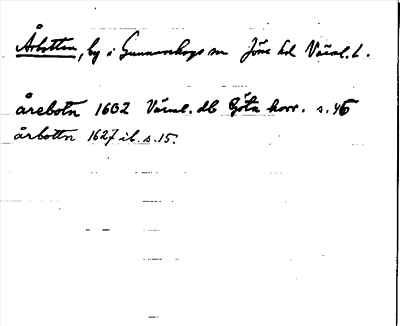 Årbotten, by i Gunnarskogs sn Jösse hd Värml. l.
årebotn 1602 Värml. db Göta hovr. s. 46
årbottn 1627 ib. s. 15.